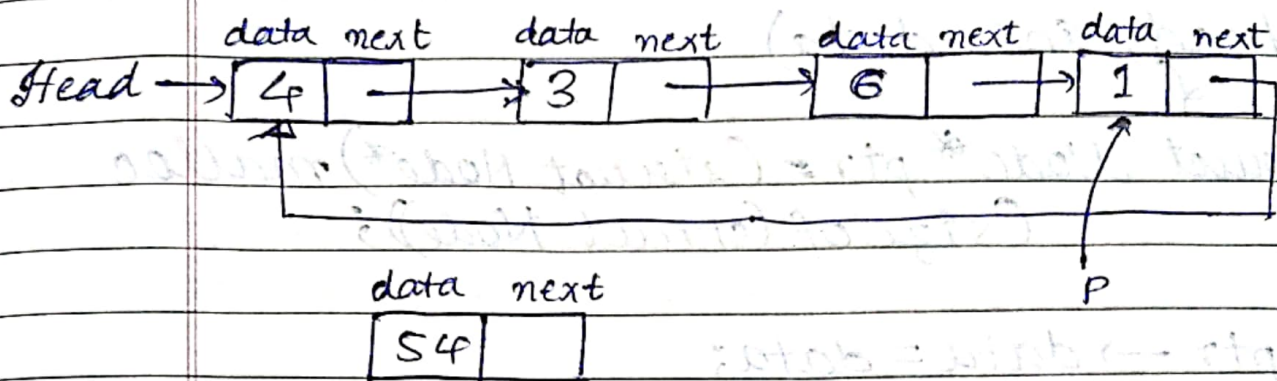 data next data next data next data next
Head 4 3 6 1
P
data next
54